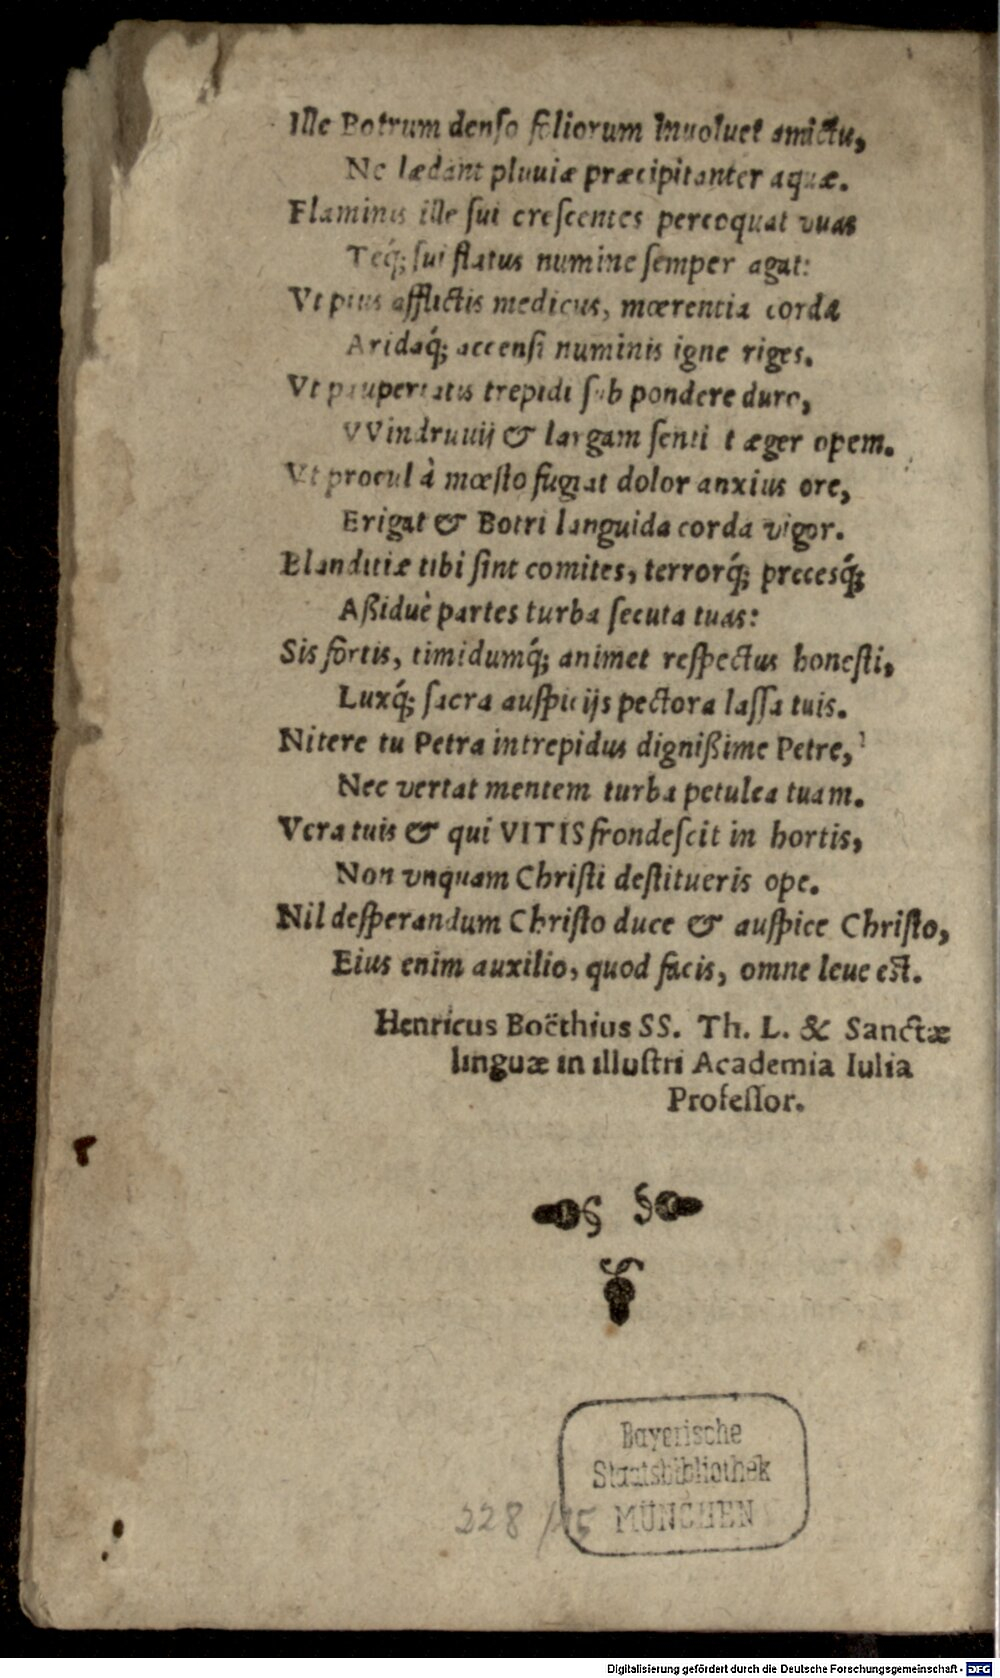 Ille Botrum denſo foliorum Inuoluet amictu,
Ne lædant pluuiæ præcipitanter aquæ.
Flaminis ille ſui creſcentes percoquat vuas
Teq́; ſui flatus numine ſemper agat:
Vt pius afflictis medicus, mœrentia corda
Aridaq́; accenſi numinis igne riges.
Vt paupertatis trepidi ſub pondere duro,
VVindruuij & largam ſenti t æger opem.
Vt procul à mœſto fugiat dolor anxius ore,
Erigat & Botri languida corda vigor.
Blanditiæ tibi ſint comites, terrorq́; precesq́;
Aßiduè partes turba ſecuta tuas:
Sis fortis, timidumq́; animet reſpectus honeſti,
Luxq́; ſacra auſpicijs pectora laſſa tuis.
Nitere tu Petra intrepidus dignißime Petre,
Nec vertat mentem turba petulca tuam.
Vera tuis & qui VITIS frondeſcit in hortis,
Non vnquam Chriſti deſtitueris ope.
Nil deſperandum Chriſto duce & auſpice Chriſto,
Eius enim auxilio, quod facis, omne leue eſt.
Henricus Boëthius SS. Th. L. & Sanctæ
linguæ in illuſtri Academia Iulia
Profeſſor.
Bayerische
Staatsbibliothek
MÜNCHEN
228 /
Digitalisierung gefördert durch die Deutsche Forschungsgemeinschaft - DFG